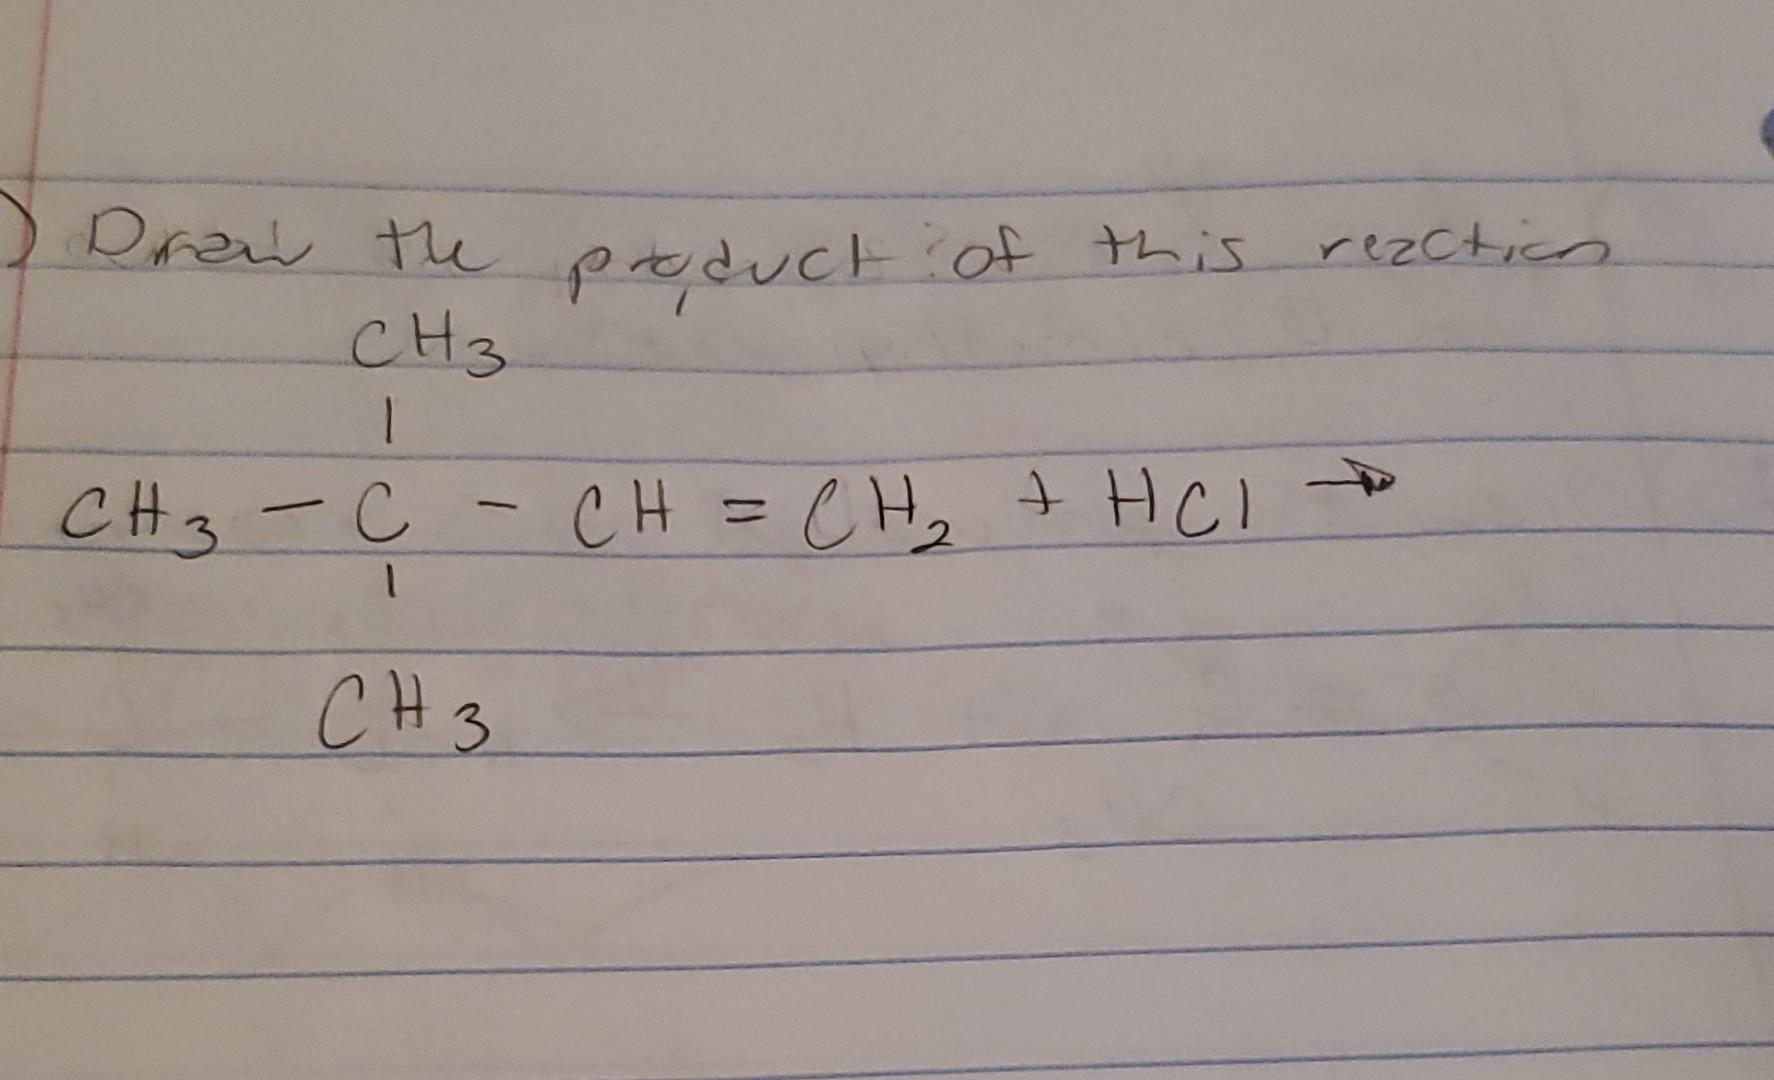 ) Draw the product of this reaction
CH3
|
CH3 - C - CH = CH2 + HCl →
|
CH3